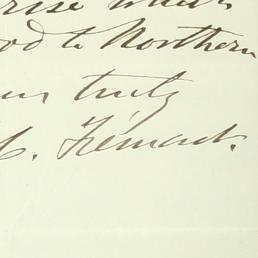 rise which
od to Northern
urs truly
C. Frémont.